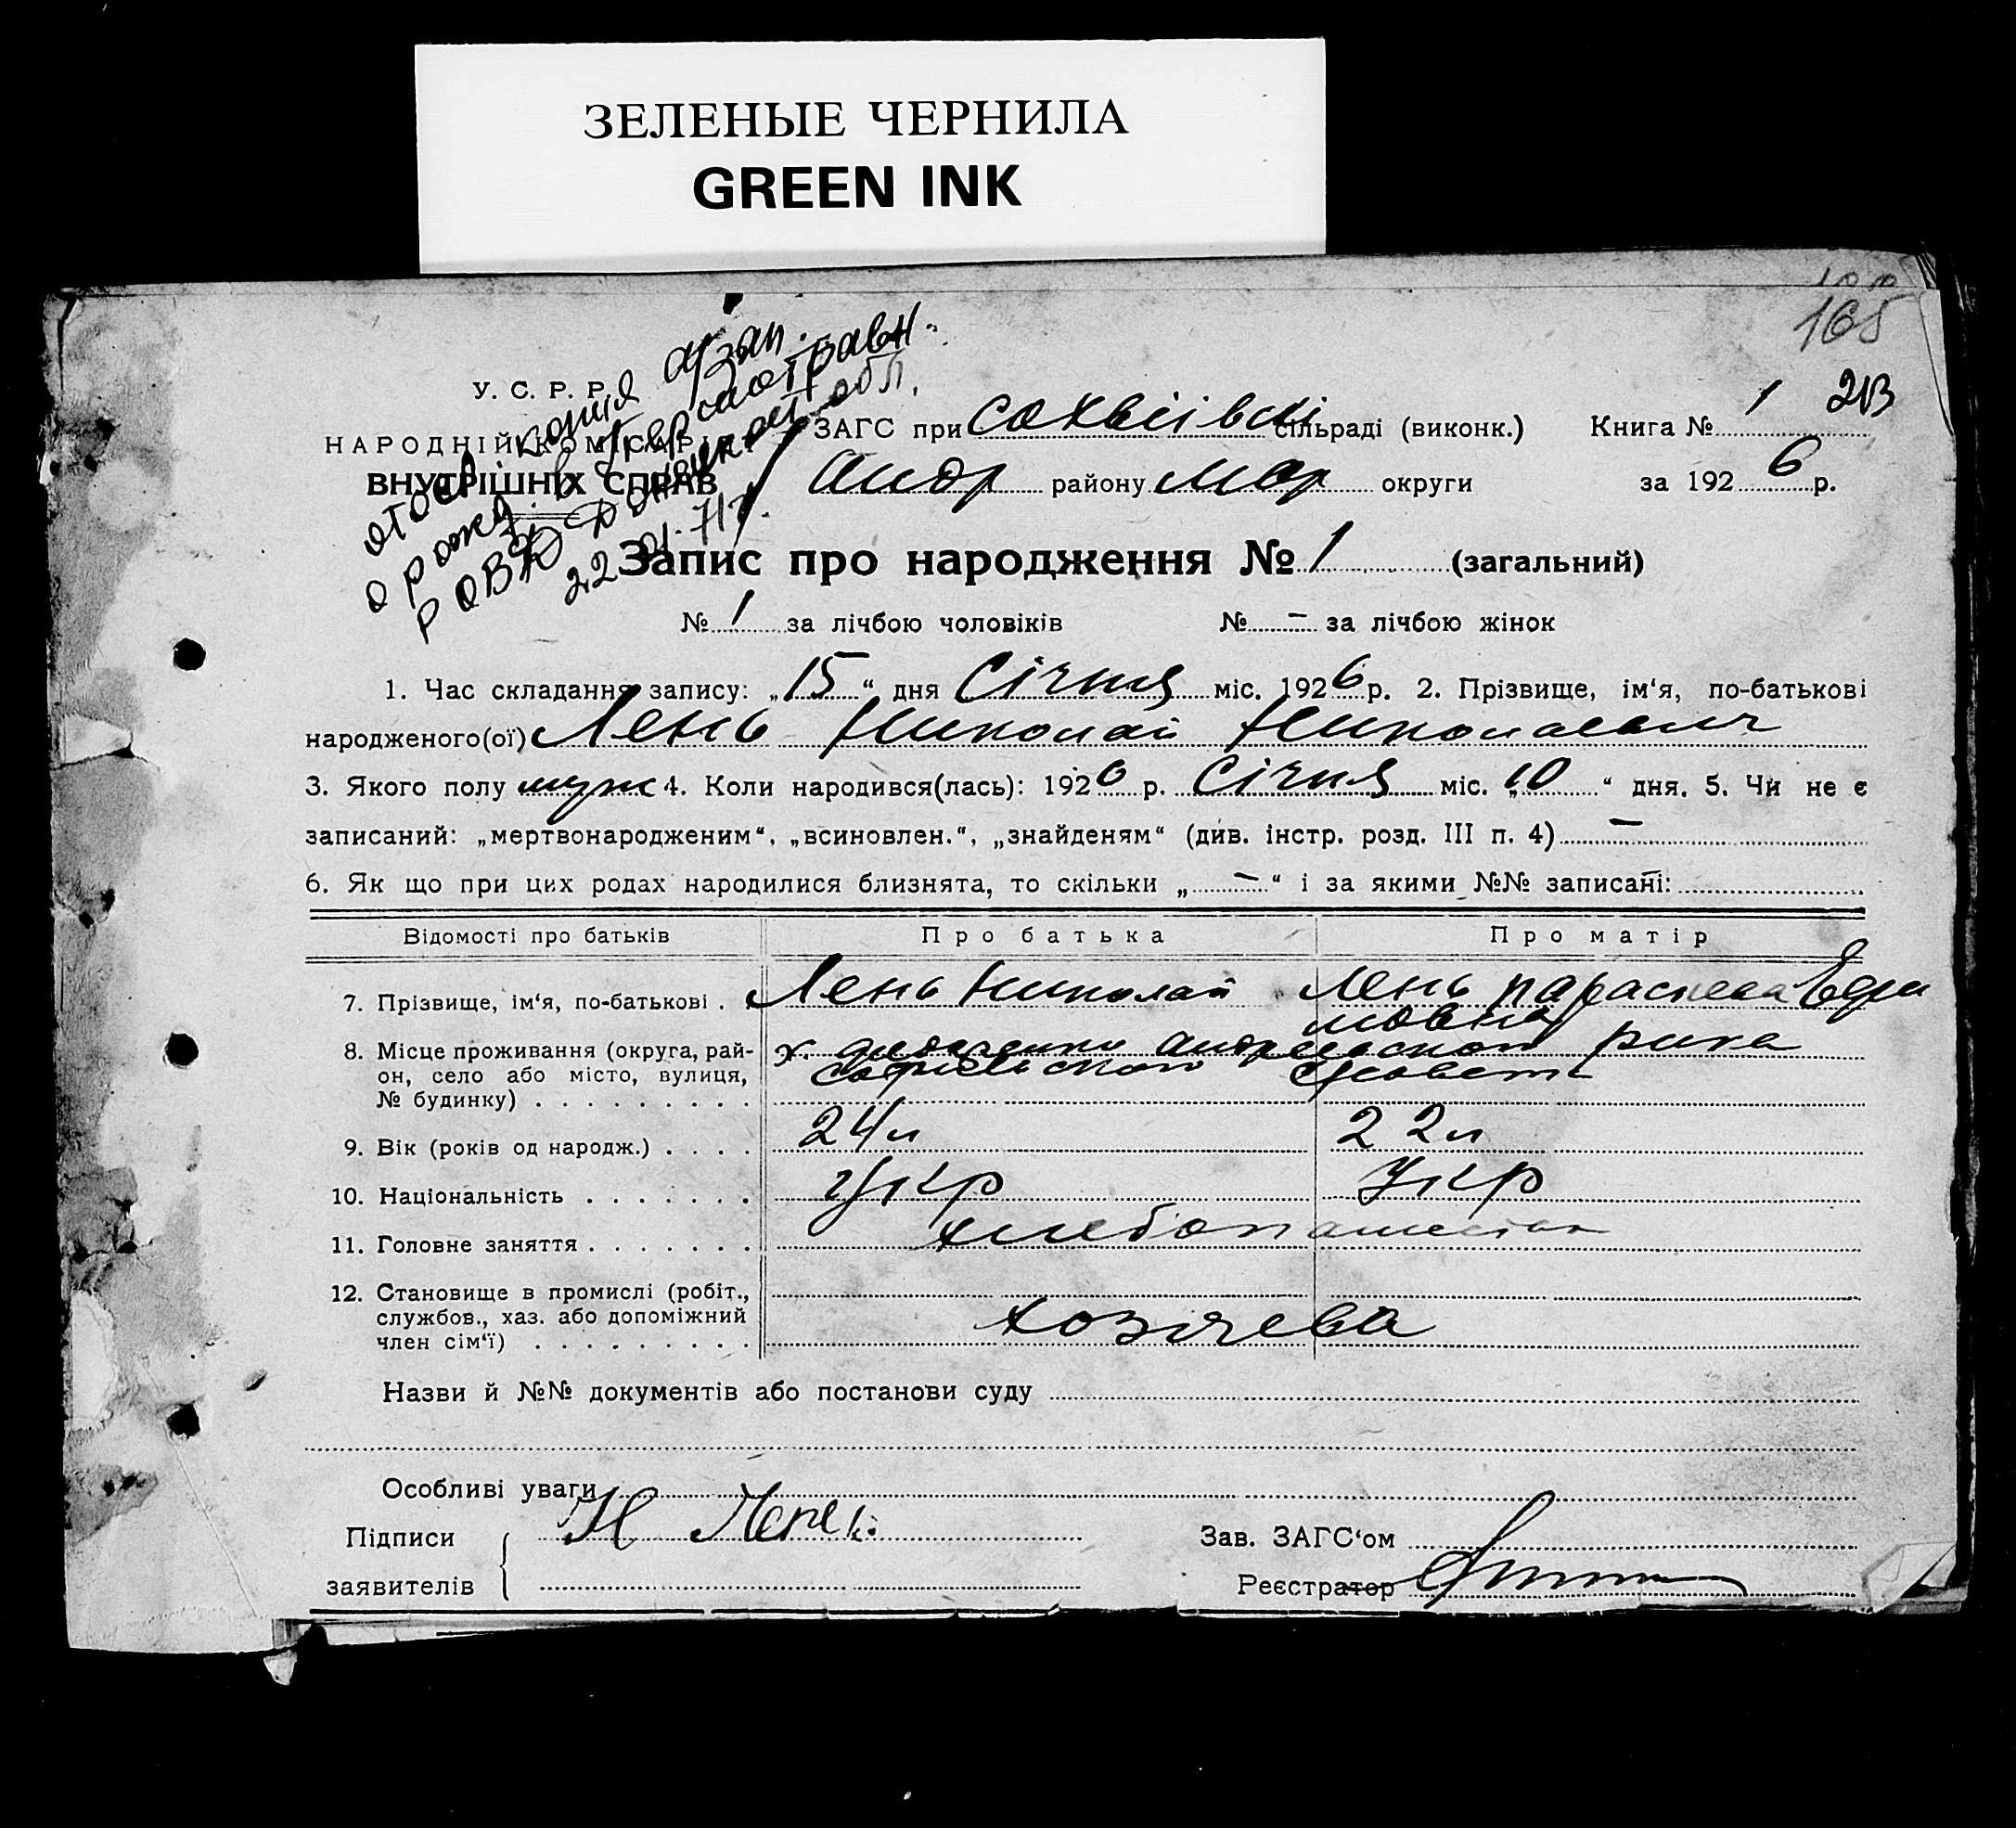 ЗЕЛЕНЫЕ ЧЕРНИЛА
GREEN INK
165
У. С. Р. Р.
НАРОДНІЙ КОМІСАРІЯТ
ВНУТРІШНІХ СПРАВ
копия а/зап.
о рожд. в
РОВД Донецкой обл.
22.01.71г.
ЗАГС при сільраді (виконк.) Книга № 1 213
Андр району Мар округи за 1926 р.
Запис про народження № 1 (загальний)
№ 1 за лічбою чоловіків № – за лічбою жінок
1. Час складання запису: „15“ дня Січня міс. 1926 р. 2. Прізвище, ім‘я, по-батькові
народженого(ої) Лень Николай Николаевич
3. Якого полу муж 4. Коли народився(лась): 1926 р. Січня міс. „10“ дня. 5. Чи не є
записаний: „мертвонародженим“, „всиновлен.“, „знайденям“ (див. інстр. розд. III п. 4) –
6. Як що при цих родах народилися близнята, то скільки „–“ і за якими №№ записані:
Відомості про батьків Про батька Про матір
7. Прізвище, ім‘я, по-батькові . Лень Николай Лень Параскева
8. Місце проживання (округа, рай-
он, село або місто, вулиця,
№ будинку) . . . . . . . . .
х. рика
9. Вік (років од народж.) . . . . 24л 22л
10. Національність . . . . . . . Укр Укр
11. Головне заняття . . . . . . . хлебопашество
12. Становище в промислі (робіт.,
службов., хаз. або допоміжний
член сім‘ї) . . . . . . . . .
хозяева
Назви й №№ документів або постанови суду
Особливі уваги
Підписи Н Лень Зав. ЗАГС‘ом
заявителів Реєстратор